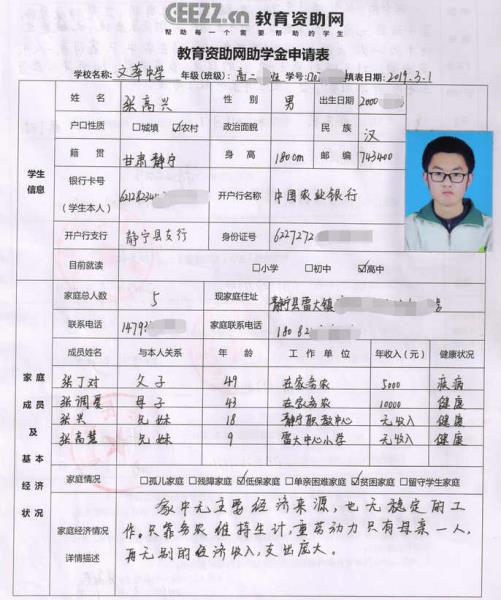 CEEZZ.cn 教育资助网
帮助每一个需要帮助的学生
教育资助网助学金申请表
学校名称: 文萃中学 年级(班级): 高二 学号: 填表日期: 2019.3.1
姓名 张高兴 性别 男 出生日期 2000
户口性质 □城填 ☑农村 政治面貌 民族 汉
籍贯 甘肃静宁 身高 180cm 邮编 743400
学生信息
银行卡号(学生本人) 开户行名称 中国农业银行
开户行支行 静宁县支行 身份证号 6227272
目前就读 □小学 □初中 ☑高中
家庭总人数 5 现家庭住址 静宁县雷大镇 号
联系电话 1479 家庭联系电话
成员姓名 与本人关系 年龄 工作单位 年收入(元) 健康状况
张丁对 父子 49 在家务农 5000 疾病
母子 43 在家务农 10000 健康
张兴 兄妹 18 静宁职教中心 无收入 健康
张高慧 兄妹 9 雷大中心小学 无收入 健康
家庭成员及基本经济状况
家庭情况 □孤儿家庭 □残障家庭 ☑低保家庭 □单亲困难家庭 ☑贫困家庭 □留守学生家庭
家庭经济情况详情描述
家中无主要经济来源,也无稳定的工
作。只靠务农维持生计,重劳动力只有母亲一人,
再无别的经济收入,支出庞大。